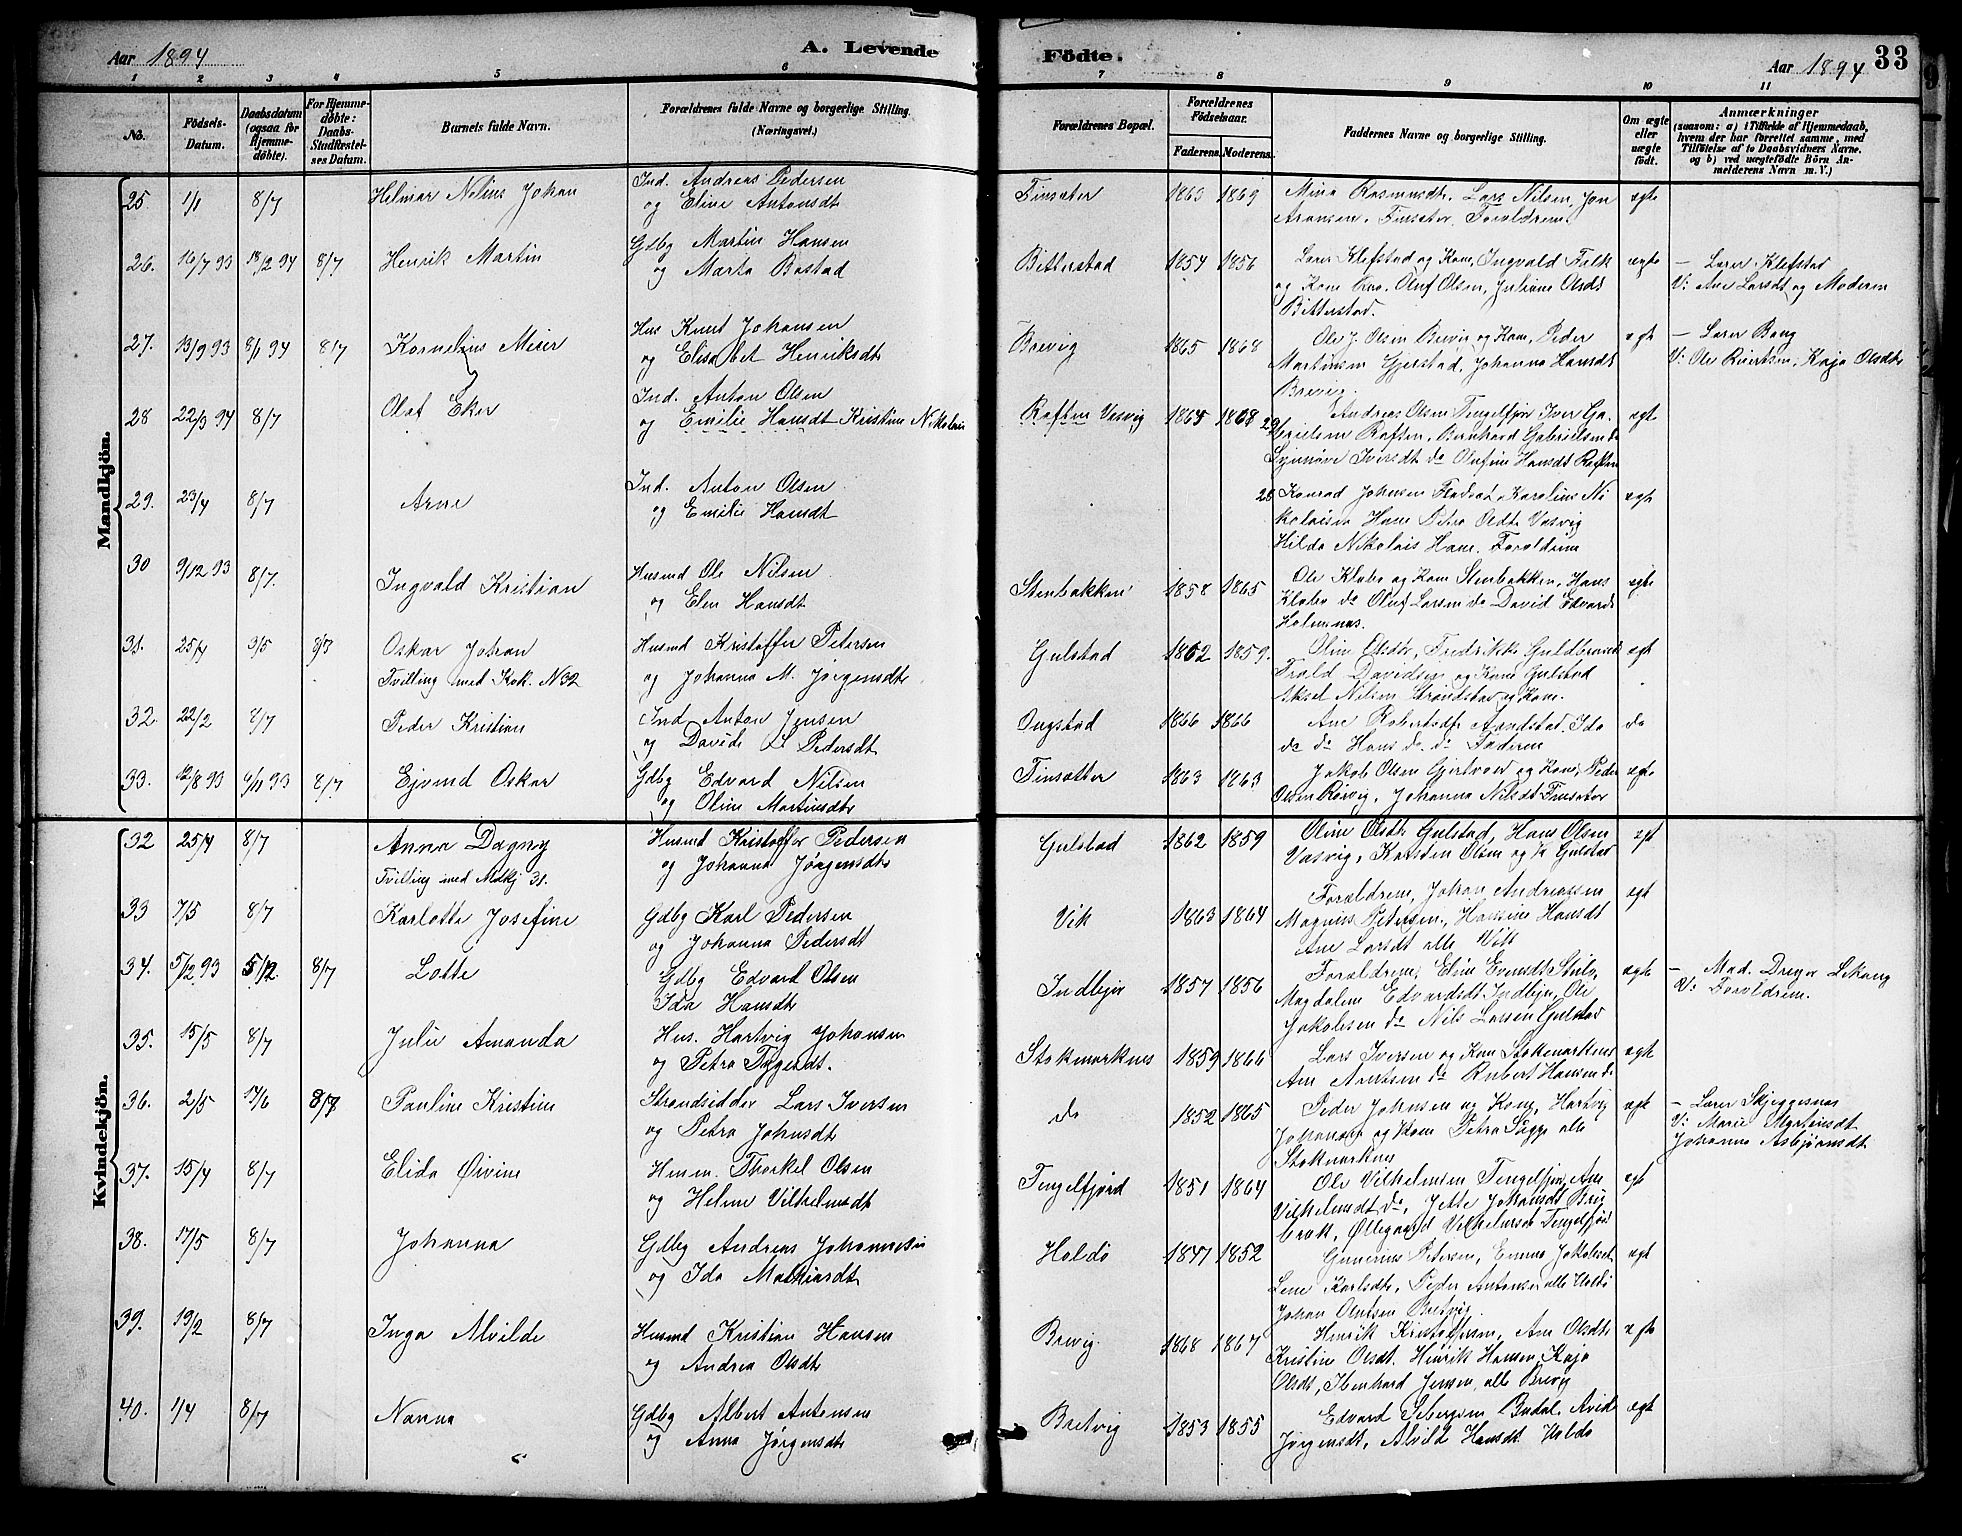 Aar 1894
A. Levende
Födte.
Aar 1894
33
1 2 3 4 5 6 7 8 9 10 11
No.
Födsels-Datum.
Daabsdatum (ogsaa for Hjemmedöbte).
For Hjemmedöbte: Daabs-Stadfæstelses Datum.
Barnets fulde Navn.
Forældrenes fulde Navne og borgerlige Stilling. (Næringsvei.)
Forældrenes Bopæl.
Forældrenes Födselsaar.
Faderens. Moderens.
Faddernes Navne og borgerlige Stilling.
Om ægte eller uægte födt.
Anmærkninger (saasom: a) i Tilfælde af Hjemmedaab, hvem der har forrettet samme, med Tilföielse af to Daabsvidners Navne. og b) ved uægtefödte Börn Anmelderens Navn m. V.)
Mandkjön.
25. 1/1 8/7 Helmar Nolius Johan Ind. Andreas Pedersen
og Eline Antonsdt
Finsæter 1863 1869 Mina Rasmusdt. Lars Nilsen, Jon
Aronsen. Finsæter. Forældrene. ægte
26. 16/7 93 18/2 94 8/7 Henrik Martin Gdbg Martin Hansen
og Marta Bostad
Bitterstad 1854 1856 Lærer Klefstad og Kone, Ingvald Falk
og Kone Oluf Olsen, Juliane Olsdt
Bitterstad. ægte
– Lærer Klefstad
V: Ane Larsdt og Moderen
27. 13/9 93 8/1 94 8/7 Kornelius Meier Hus Knut Johansen
og Elisabet Henriksdt
Brevig 1865 1868 Ole J. Olsen Brevig og Kone, Peder
Martinsen Gjerstad, Johanna Hansdt
Brevig. egt
– Lærer Bong
V: Ole Rivertsen, Kaja Olsdtr
28 22/3 94 8/7 Olaf Eker Ind. Anton Olsen
og Emilie Hansdt Kristine Nikolais
Raften Vasvig 1865 1868 29 Andreas Olsen Tengelfjor Iver Ga-
brielsen Raften, Bernhard Gabrielsen do
Synnøve Iversdt do Olufine Hansdt Raften egt
29. 23/4 8/7 Arne Ind. Anton Olsen
og Emilie Hansdt
28 Konrad Johnsen Karolius Ni
kolaisen Kone Petra Oldt Vasvig
Hilda Nikolais Kone. Forældrene egt
30 9/12 93 8/7. Ingvald Kristian Husmd Ole Nilsen
og Elen Hansdt
Stenbakken 1858 1865 Ole Klabo og Kone Stenbakken, Hans
Klabo do Oluf Larsen do David Edvards
Holmenes. egte
31. 25/4 3/5 8/7 Oskar Johan Husmd Kristoffer Petersen
Tvilling med Kvk. N 32 og Johanna M. Jørgensdt
Gulstad 1862 1859. Olin Olsdtr, Fredrikke Guldbrand
Davidsen og Kone Gulstad
Aksel Nilsen Strandstad og Kone egt
32. 22/2 8/7 Peder Kristian Ind Anton Jensen
og Davida Pedersdt
Ongstad 1866 1866 Ane Robertsdtr Aandstad. Ida
do do Hans do do Faderen do
33. 12/8 93 6/11 93 8/7 Ejvind Oskar Gdbg Edvard Nilsen
og Oline Martinsdt
Finsætter 1863 1863 Jakob Olsen Gjertvold og Kone, Peder
Olsen Rørvig, Johanna Nilsdt Finsæter ægte
Kvindekjön.
32 25/4 8/7 Anna Dagny Husmd Kristoffer Pedersen
Tvilling med Mdkj 31. og Johanna Jørgensdt
Gulstad 1862 1859 Oline Olsdt Gulstad, Hans Olsen
Vasvig, Karsten Olsen og Gulstad egt
33 7/5 8/7 Karlotte Josefine Gdbg Karl Pedersen
og Johanna Pedersdt
Vik 1863 1864 Forældrene, Johan Andreassen
Magnus Petersen, Hansine Hansdt
Ane Larsdt alle Vik egt
34. 5/12 93 5/12 8/7 Lotte Gdbg Edvard Olsen
Ida Hansdt
Indlejr 1857 1856 Forældrene, Eline Evensdt
Magdalene Edvardsdt Indlejr, Ole
Jakobsen do Nils Larsen Gulstad ægte
– Mad. Dreyer Lekang
V: Forældrene.
35. 15/5 8/7 Julie Amanda Hus. Hartvig Johansen
og Petra
Stokmarknes 1859 1866 Lars Iversen og Kone Stokmarknes
Ane Arntsen do Robert Hansen do egt
36. 2/5 17/6 8/7 Pauline Kristine Strandsidder Lars Iversen
og Petra Johnsdt
do 1852 1865 Peder Johnsen og Kone, Hartvig
Johansen og Kone Petra alle
Stokmarknes egt
– Lærer Skjeggesnes
V: Marie Martinsdt
Johanna Asbjørnsdt
37. 15/4 8/7 Elida Øivine Torkel Olsen
og Helene Vilhelmsdt
Tengelfjord 1851 1864 Ole Vilhelmsen Tengelfjor, Ane
Vilhelmsdt do, Jette Johansdt
Øllegaard Vilhelmsen Tengelfjor egt
38. 17/5 8/7 Johanna Gdbg Andreas Johannesen
og Ida Matiasdt
Holdø 1847 1852 Gunerius Petersen, Emma Jakobsdt
Lene Karlsdt, Peder Antonsen alle Holdø
Johan Olutsen Bretvig egt
39. 19/2 8/7 Inga Alvilde Husmd Kristian Hansen
og Andrea Olsdt
Brevig. 1868 1867 Henrik Kristoffersen, Ane Olsdt
Kristine Olsdt. Henrik Hansen, Kaja
Olsdt, Jenhard Jensen, alle Brevig ægte
40. 1/4 8/7 Nanna Gdbg Albert Antonsen
og Anna Jørgensdt
Bretvig 1853 1855 Edvard Sebergsen Budal, Avide
Jørgensdt, Alvild Hansdt Holdø ægt